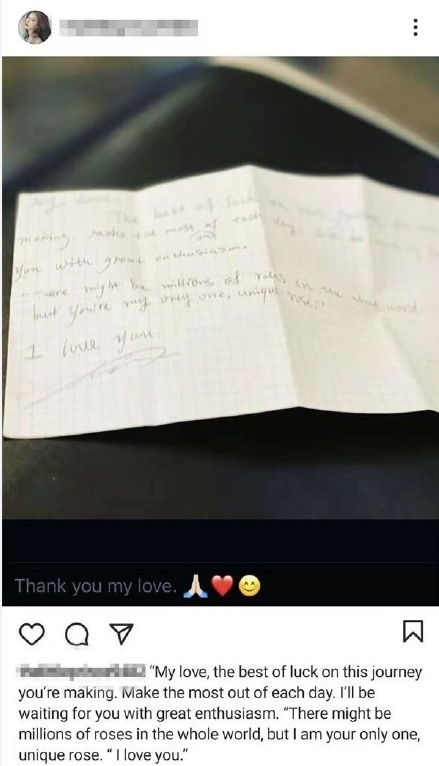 My love
The best of luck on this
making. Make the most of each day.
you with great enthusiasm.
"There might be millions of roses in the whole world
but you're my only one, unique rose."
I love you.
Thank you my love. 🙏🏻❤️😊
"My love, the best of luck on this journey
you're making. Make the most out of each day. I'll be
waiting for you with great enthusiasm. "There might be
millions of roses in the whole world, but I am your only one,
unique rose. " I love you."